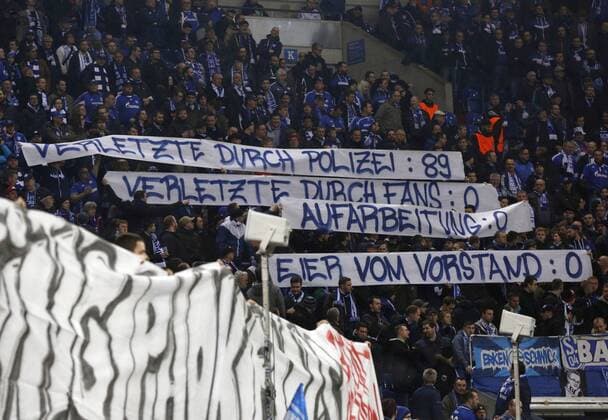 K
VERLETZTE DURCH POLIZEI : 89
VERLETZTE DURCH FANS : 0
AUFARBEITUNG : 0
EIER VOM VORSTAND : 0